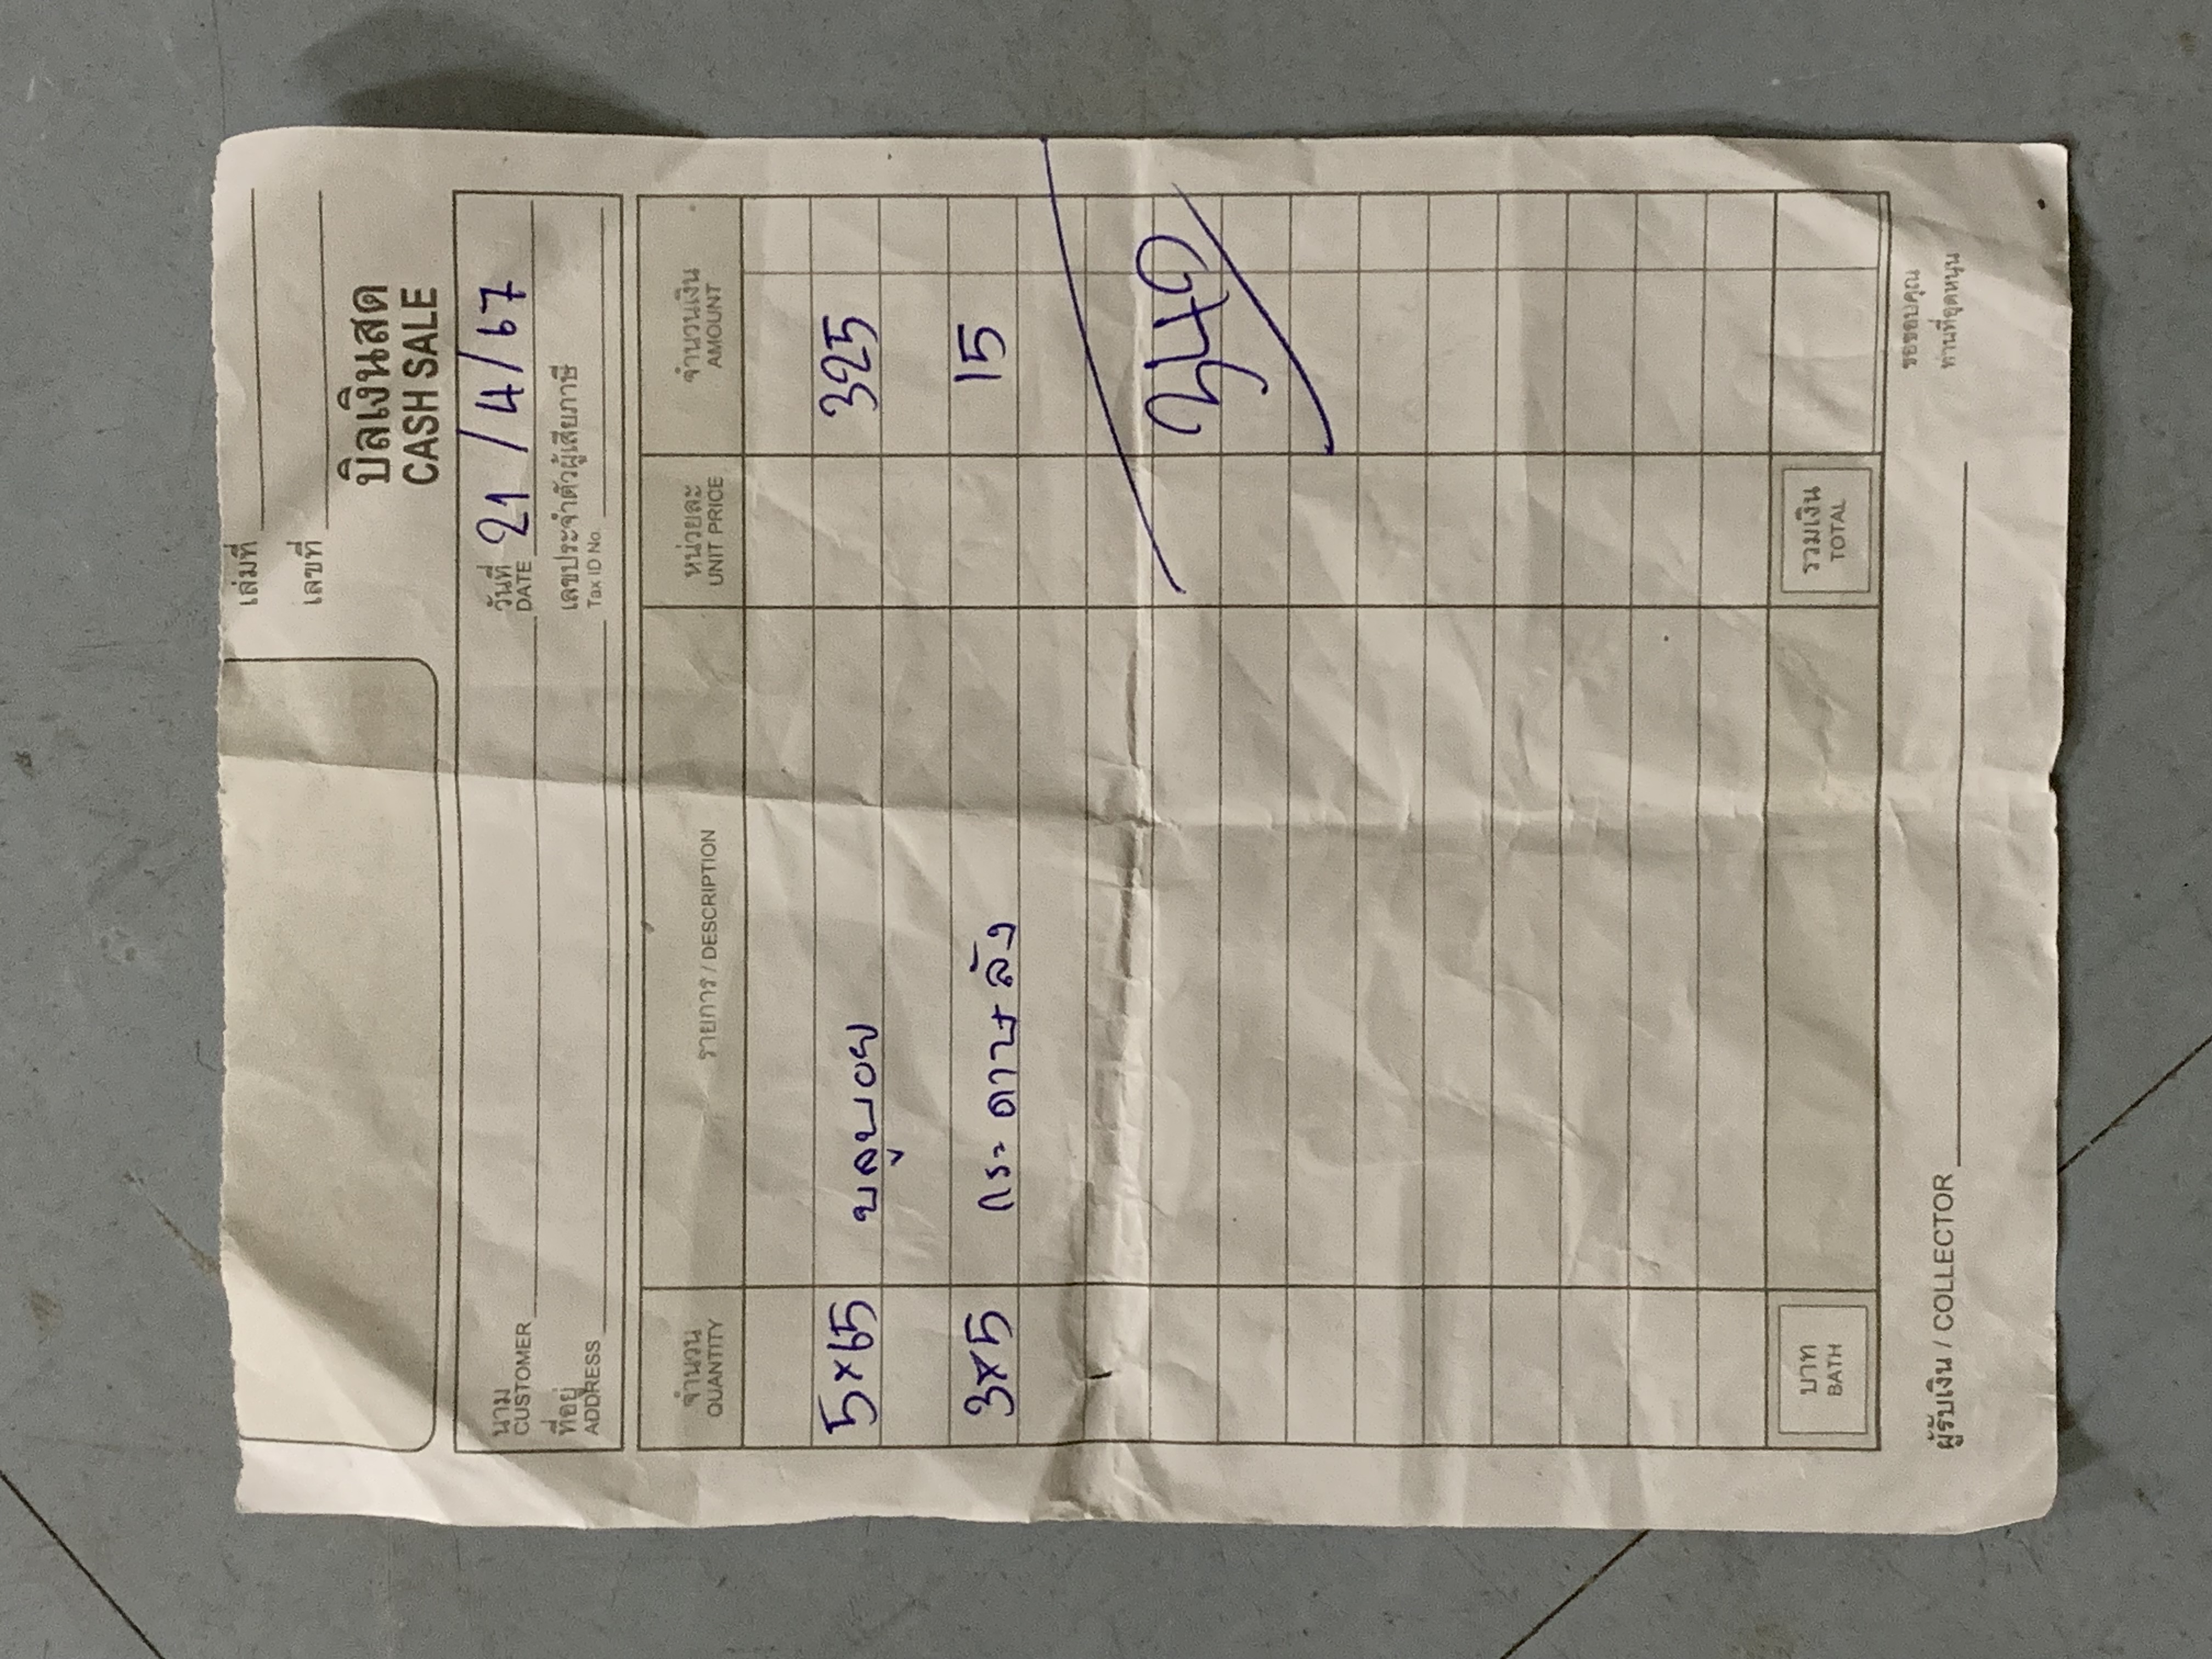 เล่มที่
เลขที่
บิลเงินสด
CASH SALE
นาม
CUSTOMER
วันที่
DATE 21/4/67
ที่อยู่
ADDRESS
เลขประจำตัวผู้เสียภาษี
Tax ID No.
จำนวน
QUANTITY
รายการ / DESCRIPTION
หน่วยละ
UNIT PRICE
จำนวนเงิน
AMOUNT
5×65 บลูบอย 325
3×5 กระดาษลัง 15
340
บาท
BATH
รวมเงิน
TOTAL
ผู้รับเงิน / COLLECTOR
ขอขอบคุณ
ท่านที่อุดหนุน